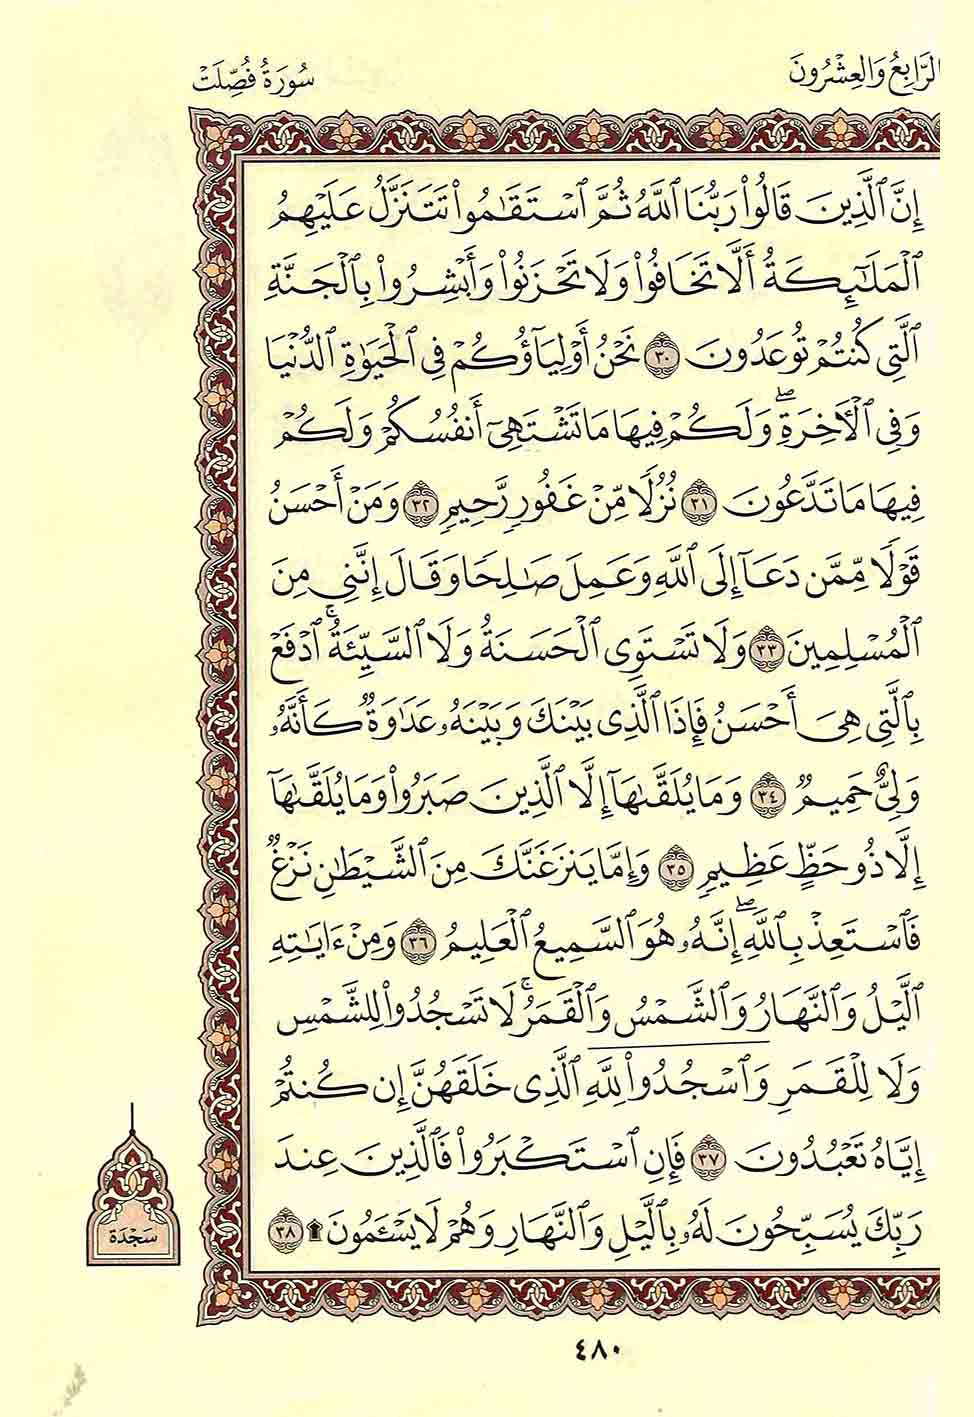 الرَّابِعُ وَالعِشْرُونَ
سُورَةُ فُصِّلَتْ
إِنَّ ٱلَّذِينَ قَالُوا۟ رَبُّنَا ٱللَّهُ ثُمَّ ٱسْتَقَٰمُوا۟ تَتَنَزَّلُ عَلَيْهِمُ
ٱلْمَلَٰٓئِكَةُ أَلَّا تَخَافُوا۟ وَلَا تَحْزَنُوا۟ وَأَبْشِرُوا۟ بِٱلْجَنَّةِ
ٱلَّتِى كُنتُمْ تُوعَدُونَ ٣٠ نَحْنُ أَوْلِيَآؤُكُمْ فِى ٱلْحَيَوٰةِ ٱلدُّنْيَا
وَفِى ٱلْأَخِرَةِۖ وَلَكُمْ فِيهَا مَا تَشْتَهِىٓ أَنفُسُكُمْ وَلَكُمْ
فِيهَا مَا تَدَّعُونَ ٣١ نُزُلًا مِّنْ غَفُورٍ رَّحِيمٍ ٣٢ وَمَنْ أَحْسَنُ
قَوْلًا مِّمَّن دَعَآ إِلَى ٱللَّهِ وَعَمِلَ صَٰلِحًا وَقَالَ إِنَّنِى مِنَ
ٱلْمُسْلِمِينَ ٣٣ وَلَا تَسْتَوِى ٱلْحَسَنَةُ وَلَا ٱلسَّيِّئَةُۚ ٱدْفَعْ
بِٱلَّتِى هِىَ أَحْسَنُ فَإِذَا ٱلَّذِى بَيْنَكَ وَبَيْنَهُۥ عَدَٰوَةٌ كَأَنَّهُۥ
وَلِىٌّ حَمِيمٌ ٣٤ وَمَا يُلَقَّىٰهَآ إِلَّا ٱلَّذِينَ صَبَرُوا۟ وَمَا يُلَقَّىٰهَآ
إِلَّا ذُو حَظٍّ عَظِيمٍ ٣٥ وَإِمَّا يَنزَغَنَّكَ مِنَ ٱلشَّيْطَٰنِ نَزْغٌ
فَٱسْتَعِذْ بِٱللَّهِۖ إِنَّهُۥ هُوَ ٱلسَّمِيعُ ٱلْعَلِيمُ ٣٦ وَمِنْ ءَايَٰتِهِ
ٱلَّيْلُ وَٱلنَّهَارُ وَٱلشَّمْسُ وَٱلْقَمَرُۚ لَا تَسْجُدُوا۟ لِلشَّمْسِ
وَلَا لِلْقَمَرِ وَٱسْجُدُوا۟ لِلَّهِ ٱلَّذِى خَلَقَهُنَّ إِن كُنتُمْ
إِيَّاهُ تَعْبُدُونَ ٣٧ فَإِنِ ٱسْتَكْبَرُوا۟ فَٱلَّذِينَ عِندَ
رَبِّكَ يُسَبِّحُونَ لَهُۥ بِٱلَّيْلِ وَٱلنَّهَارِ وَهُمْ لَا يَسْـَٔمُونَ ۩ ٣٨
سَجْدَة
٤٨٠